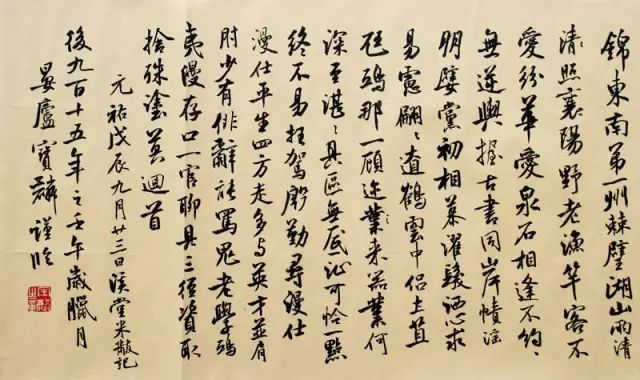 錦東南第一州棘璧湖山兩清
清照襄陽野老漁竿客不
愛紛華愛泉石相逢不約〻
無逆輿握古書同岸幘淫
朋嬖黨初相慕濯髮洒心求
易慮翩〻遼鶴雲中侶土苴
尫鴟那一顧迩業來器業何
深至湛〻具區無底沚可怜一點
終不易枉駕殷勤尋漫仕
漫仕平生四方走多与英才並肩
肘少有俳辭能罵鬼老學鴟
夷漫存口一官聊具三徑資取
捨殊塗莫迴首
元祐戊辰九月廿三日溪堂米黻記
後九百十五年之壬午歲臘月
晏廬寶麟謹臨